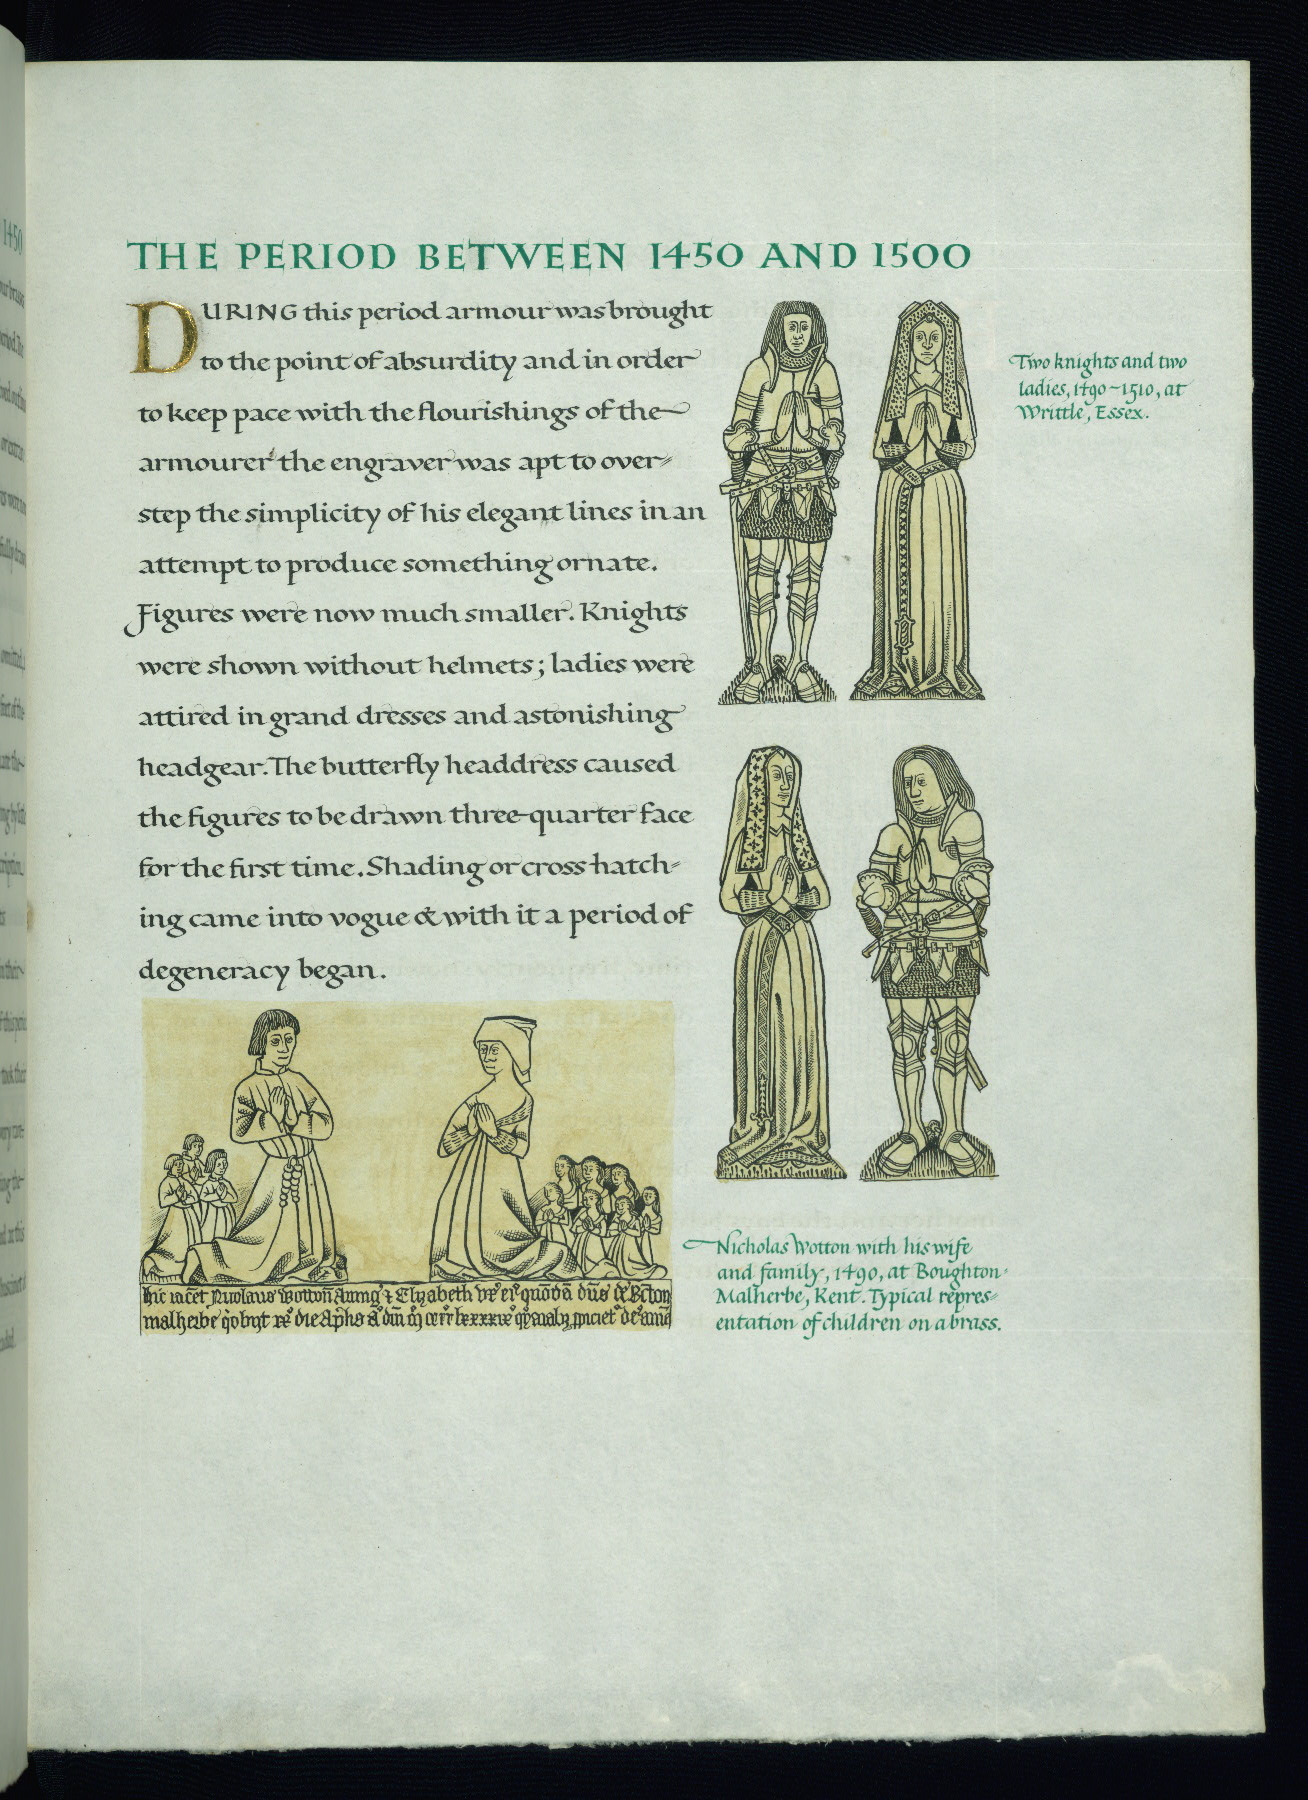 THE PERIOD BETWEEN 1450 AND 1500
DURING this period armour was brought
to the point of absurdity and in order
to keep pace with the flourishings of the
armourer the engraver was apt to over-
step the simplicity of his elegant lines in an
attempt to produce something ornate.
Figures were now much smaller. Knights
were shown without helmets; ladies were
attired in grand dresses and astonishing
headgear. The butterfly headdress caused
the figures to be drawn three-quarter face
for the first time. Shading or cross-hatch-
ing came into vogue & with it a period of
degeneracy began.
Two knights and two
ladies, 1490-1510, at
Writtle, Essex.
Nicholas Wotton with his wife
and family, 1490, at Boughton-
Malherbe, Kent. Typical repres-
entation of children on a brass.
1450